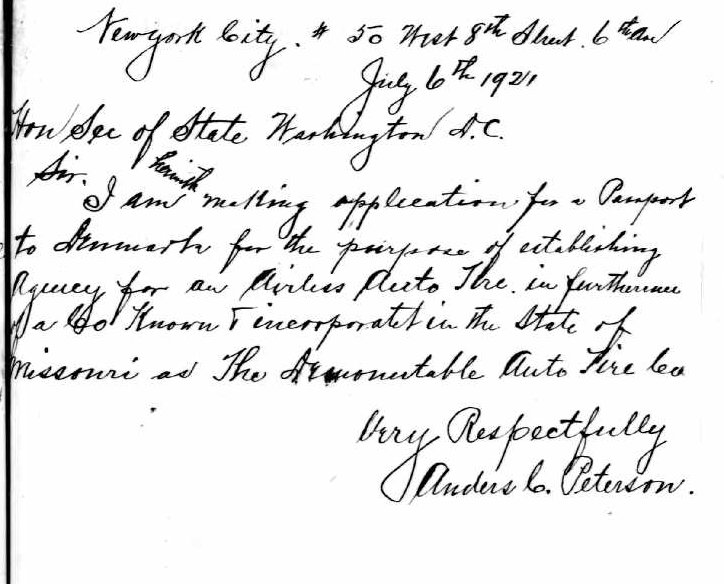 New york City. # 50 West 8th Street. 6th Ave
July 6th 1921
Hon Sec of State Washington D.C.
Sir. herewith
I am making application for a Passport
to Denmark for the purpose of establishing
Agency for an Airless Auto Tire. in furtherence
of a Co Known & incorporatet in the State of
Missouri as The Demountable Auto Tire Co
Very Respectfully
Anders C. Peterson.